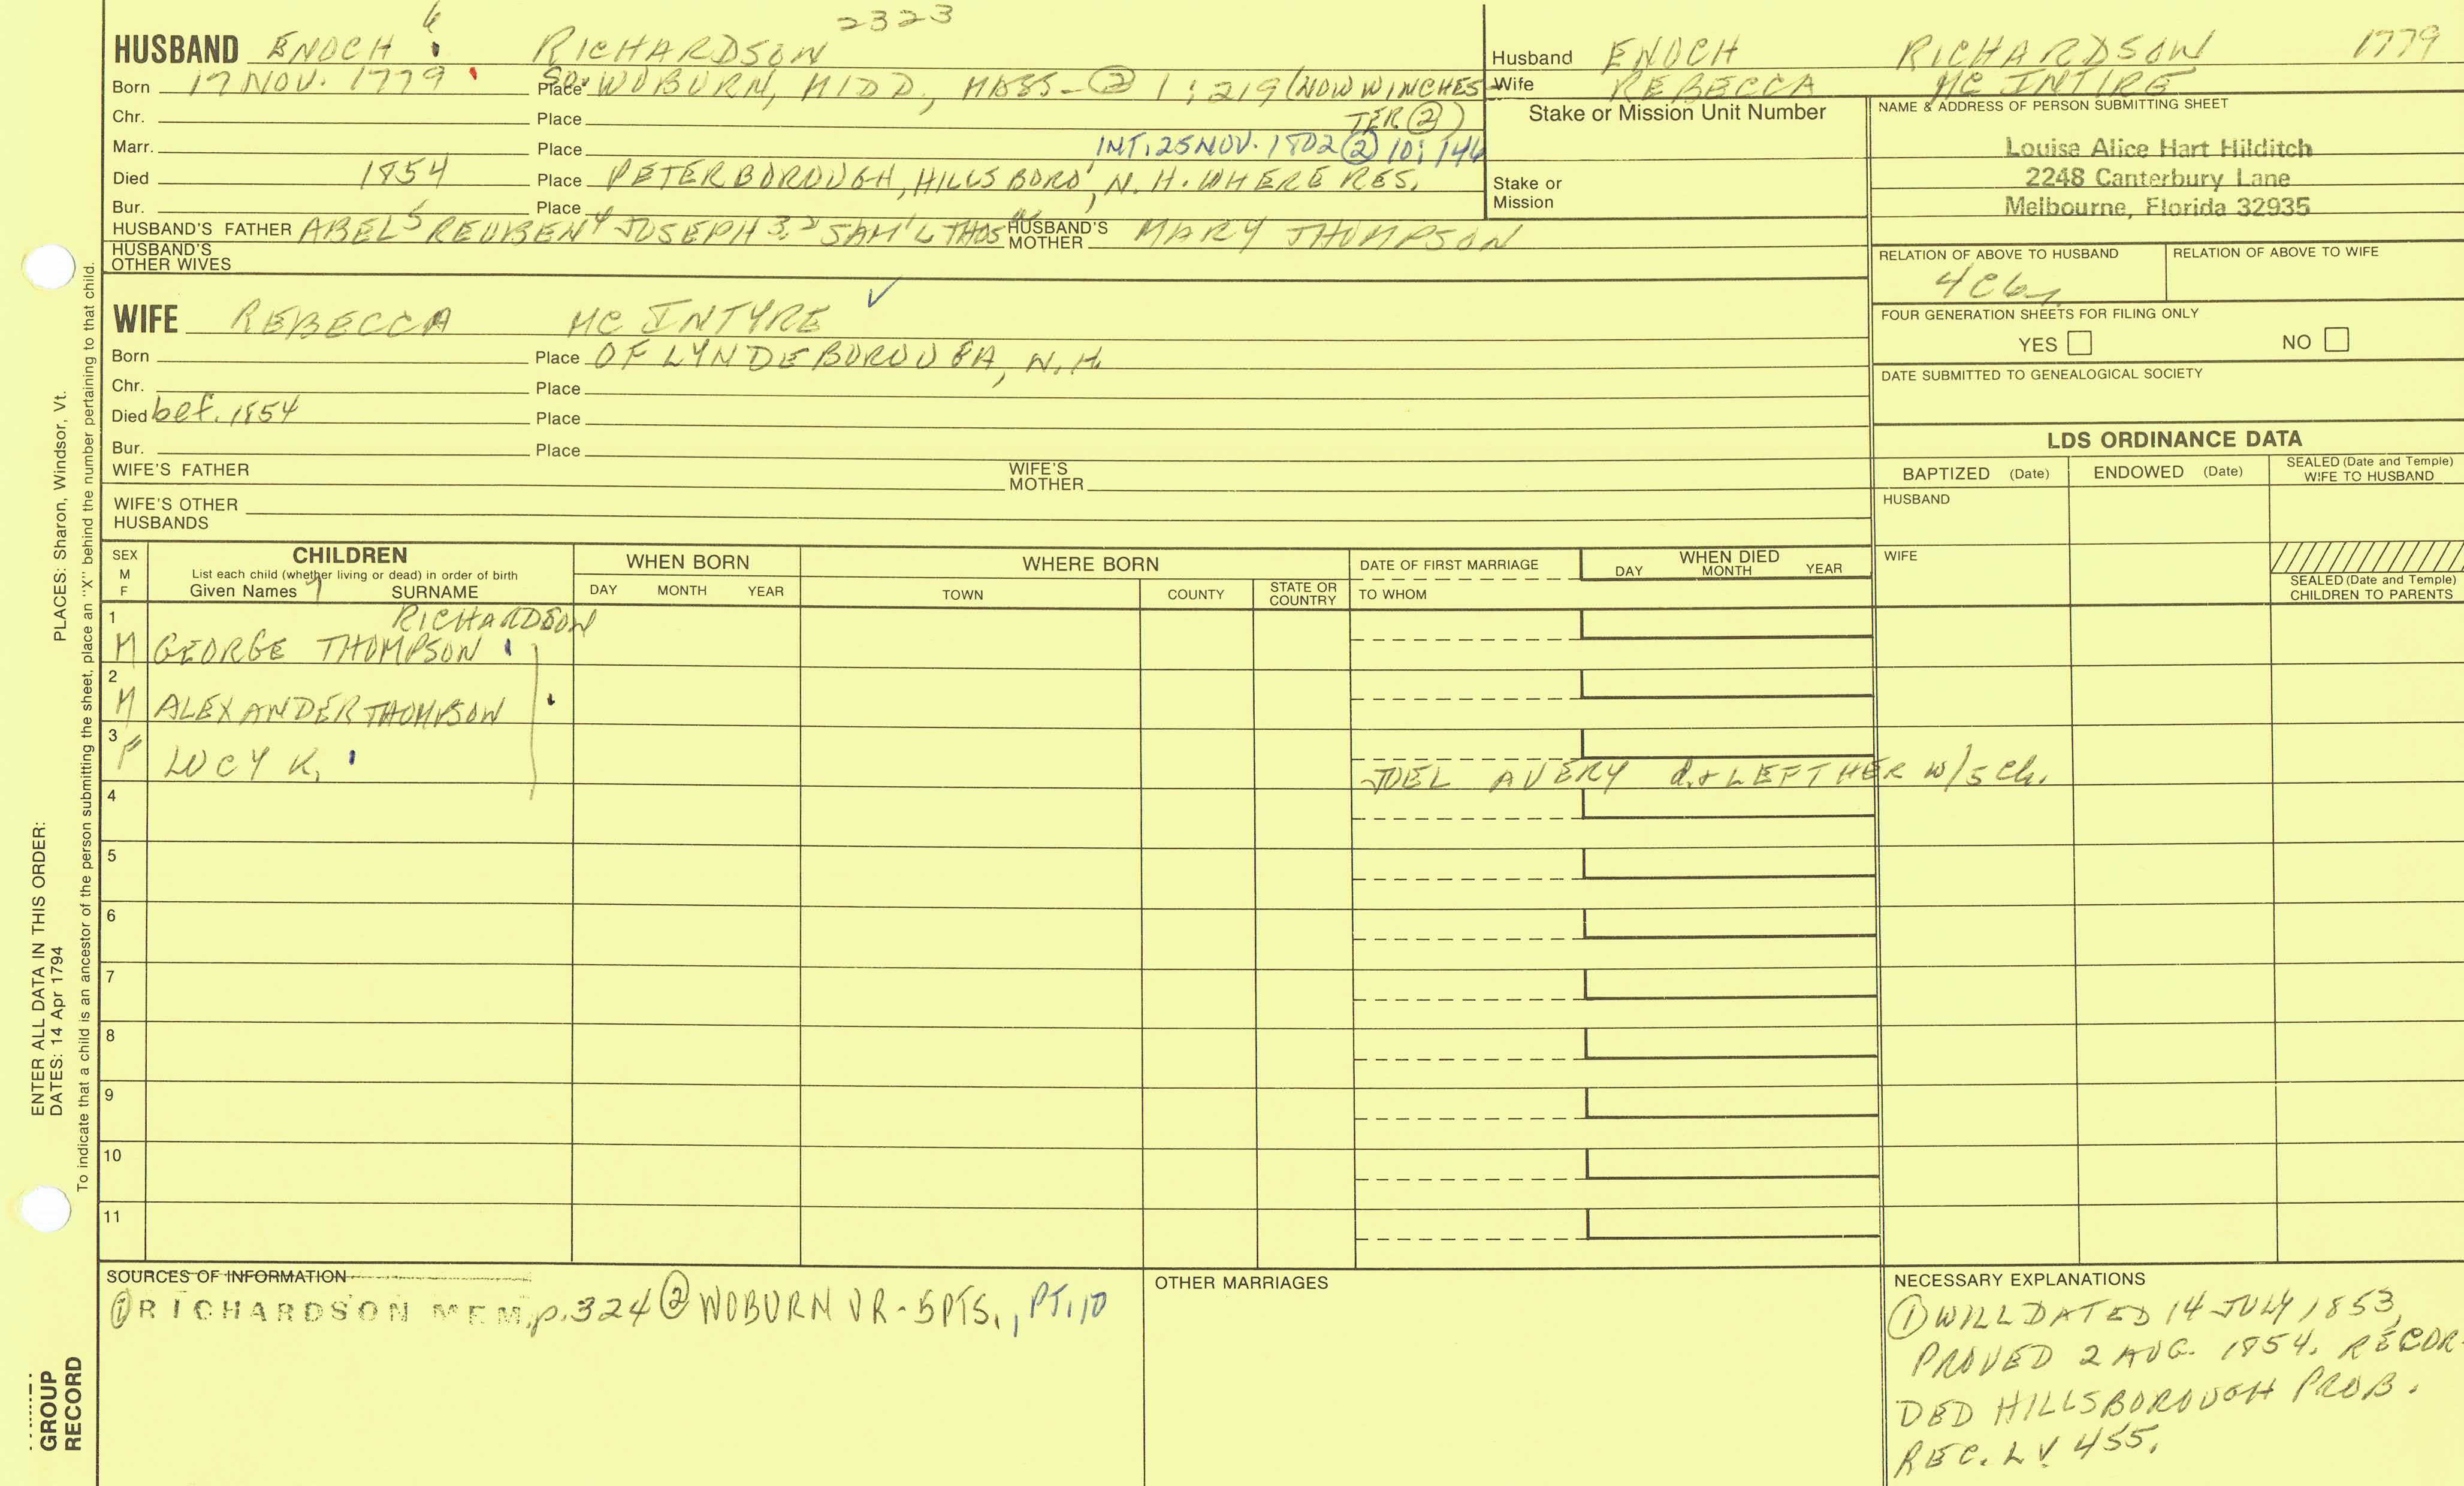 6
2323
HUSBAND ENOCH RICHARDSON
Born 17 NOV. 1779 Place SO. WOBURN, MIDD., MASS- ② 1:219 (NOW WINCHES
TER ②)
Chr. Place
Marr. Place INT: 25 NOV. 1802 ② 10: 146
Died 1854 Place PETERBOROUGH, HILLSBORO, N.H. WHERE RES.
Bur. Place
HUSBAND'S FATHER ABEL 5 REUBEN 4 JOSEPH 3, 2 SAM'L THOS HUSBAND'S MOTHER MARY THOMPSON
HUSBAND'S
OTHER WIVES
WIFE REBECCA MC INTYRE ✓
Born Place OF LYNDEBOROUGH, N.H.
Chr. Place
Died bef. 1854 Place
Bur. Place
WIFE'S FATHER WIFE'S MOTHER
WIFE'S OTHER
HUSBANDS
Husband ENOCH RICHARDSON 1779
Wife REBECCA MC INTIRE
Stake or Mission Unit Number
Stake or
Mission
NAME & ADDRESS OF PERSON SUBMITTING SHEET
Louisa Alice Hart Hilditch
2248 Canterbury Lane
Melbourne, Florida 32935
RELATION OF ABOVE TO HUSBAND RELATION OF ABOVE TO WIFE
FOUR GENERATION SHEETS FOR FILING ONLY
YES NO
DATE SUBMITTED TO GENEALOGICAL SOCIETY
LDS ORDINANCE DATA
BAPTIZED (Date) ENDOWED (Date) SEALED (Date and Temple)
WIFE TO HUSBAND
HUSBAND
WIFE
SEALED (Date and Temple)
CHILDREN TO PARENTS
SEX
M
F
CHILDREN
List each child (whether living or dead) in order of birth
Given Names SURNAME
WHEN BORN
DAY MONTH YEAR
WHERE BORN
TOWN COUNTY STATE OR COUNTRY
DATE OF FIRST MARRIAGE
TO WHOM
WHEN DIED
DAY MONTH YEAR
1 RICHARDSON
M GEORGE THOMPSON
2
M ALEXANDER THOMPSON
3
F LUCY K. JOEL AVERY d. & LEFT HER W/5 Ch.
4
5
6
7
8
9
10
11
SOURCES OF INFORMATION
① RICHARDSON MEM. p. 324 ② WOBURN VR - 5 PTS., PT. 10
OTHER MARRIAGES
NECESSARY EXPLANATIONS
① WILL DATED 14 JULY 1853,
PROVED 2 AUG. 1854. RECOR-
DED HILLSBOROUGH PROB.
REC. LV. 455.
ENTER ALL DATA IN THIS ORDER:
DATES: 14 Apr 1794 PLACES: Sharon, Windsor, Vt.
To indicate that a child is an ancestor of the person submitting the sheet, place an "X" behind the number pertaining to that child.
GROUP
RECORD